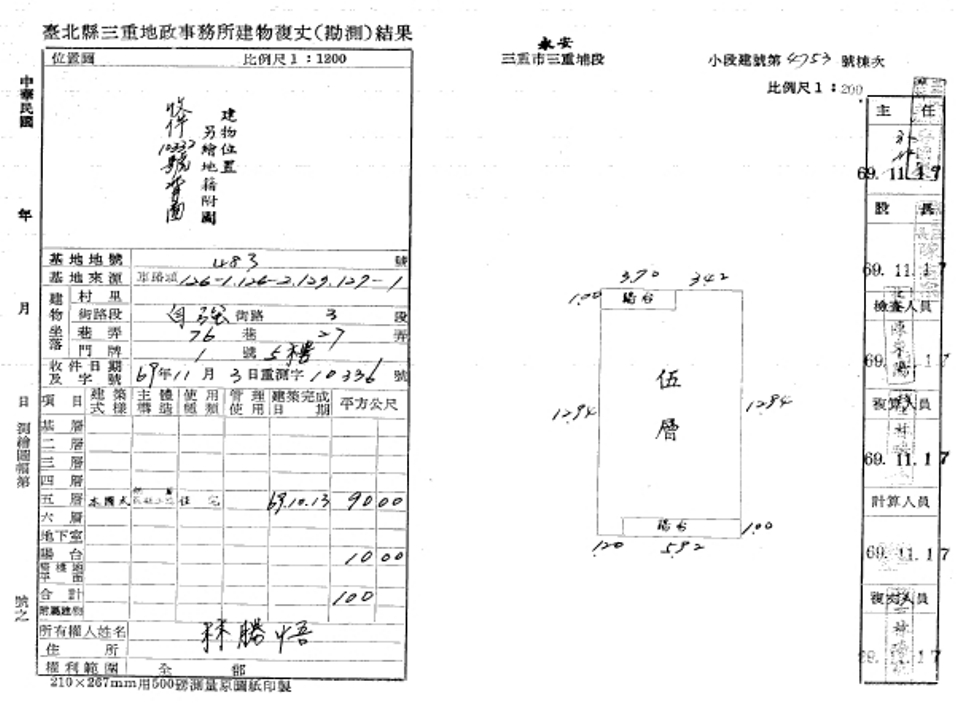 臺北縣三重地政事務所建物複丈(勘測)結果
位置圖 比例尺1:1200
建物位置
另繪地籍附圖
收件10337號書圖
中華民國 年 月 日 測繪圖幅第 號之
基地地號 483 號
基地來源 126-1.126-2.129.129-1
建物坐落 村里
街路段 自強 街路 3 段
巷弄 76 巷 27 弄
門牌 1 號 5樓
收件日期及字號 69年11月3日重測字10336號
項目 建築式樣 主體構造 使用種類 管理使用 建築完成日期 平方公尺
基層
二層
三層
四層
五層 本國式 住宅 69.10.13 90 00
六層
地下室
陽台 10 00
平面
合計 100
附屬建物
所有權人姓名 林勝悟
住所
權利範圍 全部
210×267mm用500磅測量原圖紙印製
永安
三重市三重埔段 小段建號第4753號棟次
比例尺1:200
370 342
100 陽台
伍層
1294 1294
陽台 100
120 592
主任
69.11.17
股長
69.11.17
檢查人員
69.11.17
複算人員
69.11.17
計算人員
69.11.17
複丈人員
69.11.17